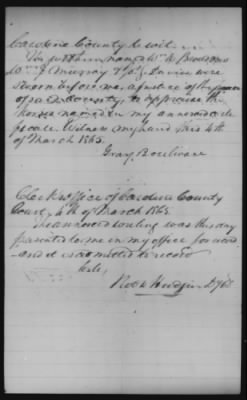 Caroline County to wit.
The within named Wm. R. Broaddus
Murray & Davies were
sworn before me a justice of the peace
of said county, to appraise the
horses named in my
Witness my hand this 4th
of March 1865.
Gray Boulware
Clerk's office of Caroline County
Court, 4th of March 1865.
The annexed writing was this day
presented to me in my office for record
and it is admitted to record
Teste,
Rob Hudgin